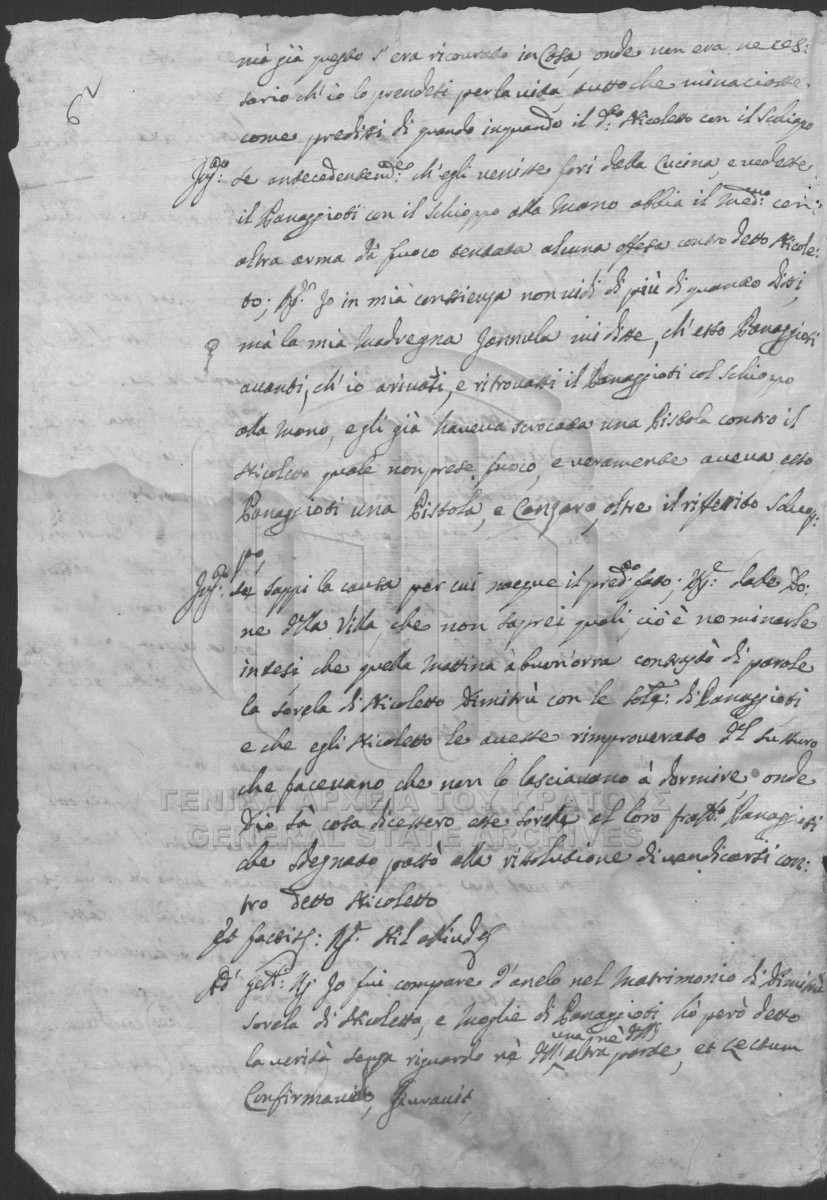 6v
mà già questo s'era ricourato in Casa, onde non era neces:
sario ch'io lo prendesi per la vita, tutto che minaciasse
come predissi di quando inquando il do. Nicoletto con il Schiopo
Intto: Se antecedentemte: ch'egli venisse fori della Cucina, e vedesse
il Panaggioti con il Schioppo alla Mano abbia il medmo con
altra arma dà fuoco tentata alcuna offesa contro detto Nicole:
tto; Rt: Io in mià consienza non vidi di più di quanto dissi,
mà la mià Madregna Jannula mi disse, ch'esso Panaggioti
avanti, ch'io arivassi, e ritrovassi il Panaggioti col Schioppo
alla Mano, egli già haveva scrocata una Pistola contro il
Nicoletto quale non prese fuoco, e veramente aveva esso
Panaggioti una Pistola, e Canzaro, oltre il rifferito Schiop:
po,
Intto: Se sappi la causa per cui nacque il predto fatto; Rt: dale Do:
ne della Villa, che non saprei quali, ciò è nominarle
intesi, che quella Mattina à buon'orra contrastò di parole
la sorela di Nicoletto Dimitrù con le sorle: di Panaggioti
e che egli Nicoletto le avesse rimproverato del sussuro
che facevano che non lo lasciavano à dormire, onde
Dio sà cosa dicessero esse sorele al loro fratto Panaggioti
che sdegnato passò alla rissolutione di vendicarsi con:
tro detto Nicoletto
Rt: Nil
Ad Rt: Io fui compare d'anelo nel Matrimonio di Dimitrù
sorela di Nicoletto, e Moglie di Panaggioti hò però detto
una, nè dell'
la verità senza riguardo nè dell'altra parte, et Lectum
Confirmavit, Juravit
ΓΕΝΙΚΑ ΑΡΧΕΙΑ ΤΟΥ ΚΡΑΤΟΥΣ
GENERAL STATE ARCHIVES